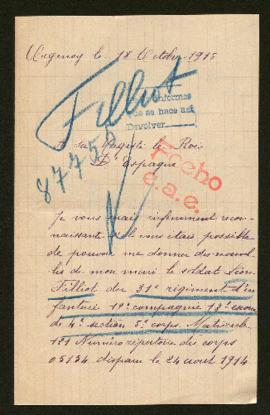 le 18 Octobre 1915
Filliot
87755
informes
que se hace así
Devolver
A sa Majesté le Roi
D'Espagne
Fecho
e.a.e.
Je vous serais infiniment recon-
naissante s'il vous était possible
de pouvoir me donner des nouvel-
les de mon mari le soldat Léon
Filliot du 31e régiment d'in
fanterie 19e compagnie 18e escoua
de 4e section 5e corps. Matricule
151 Numéro répertoire du corps
05134 disparu le 24 août 1914